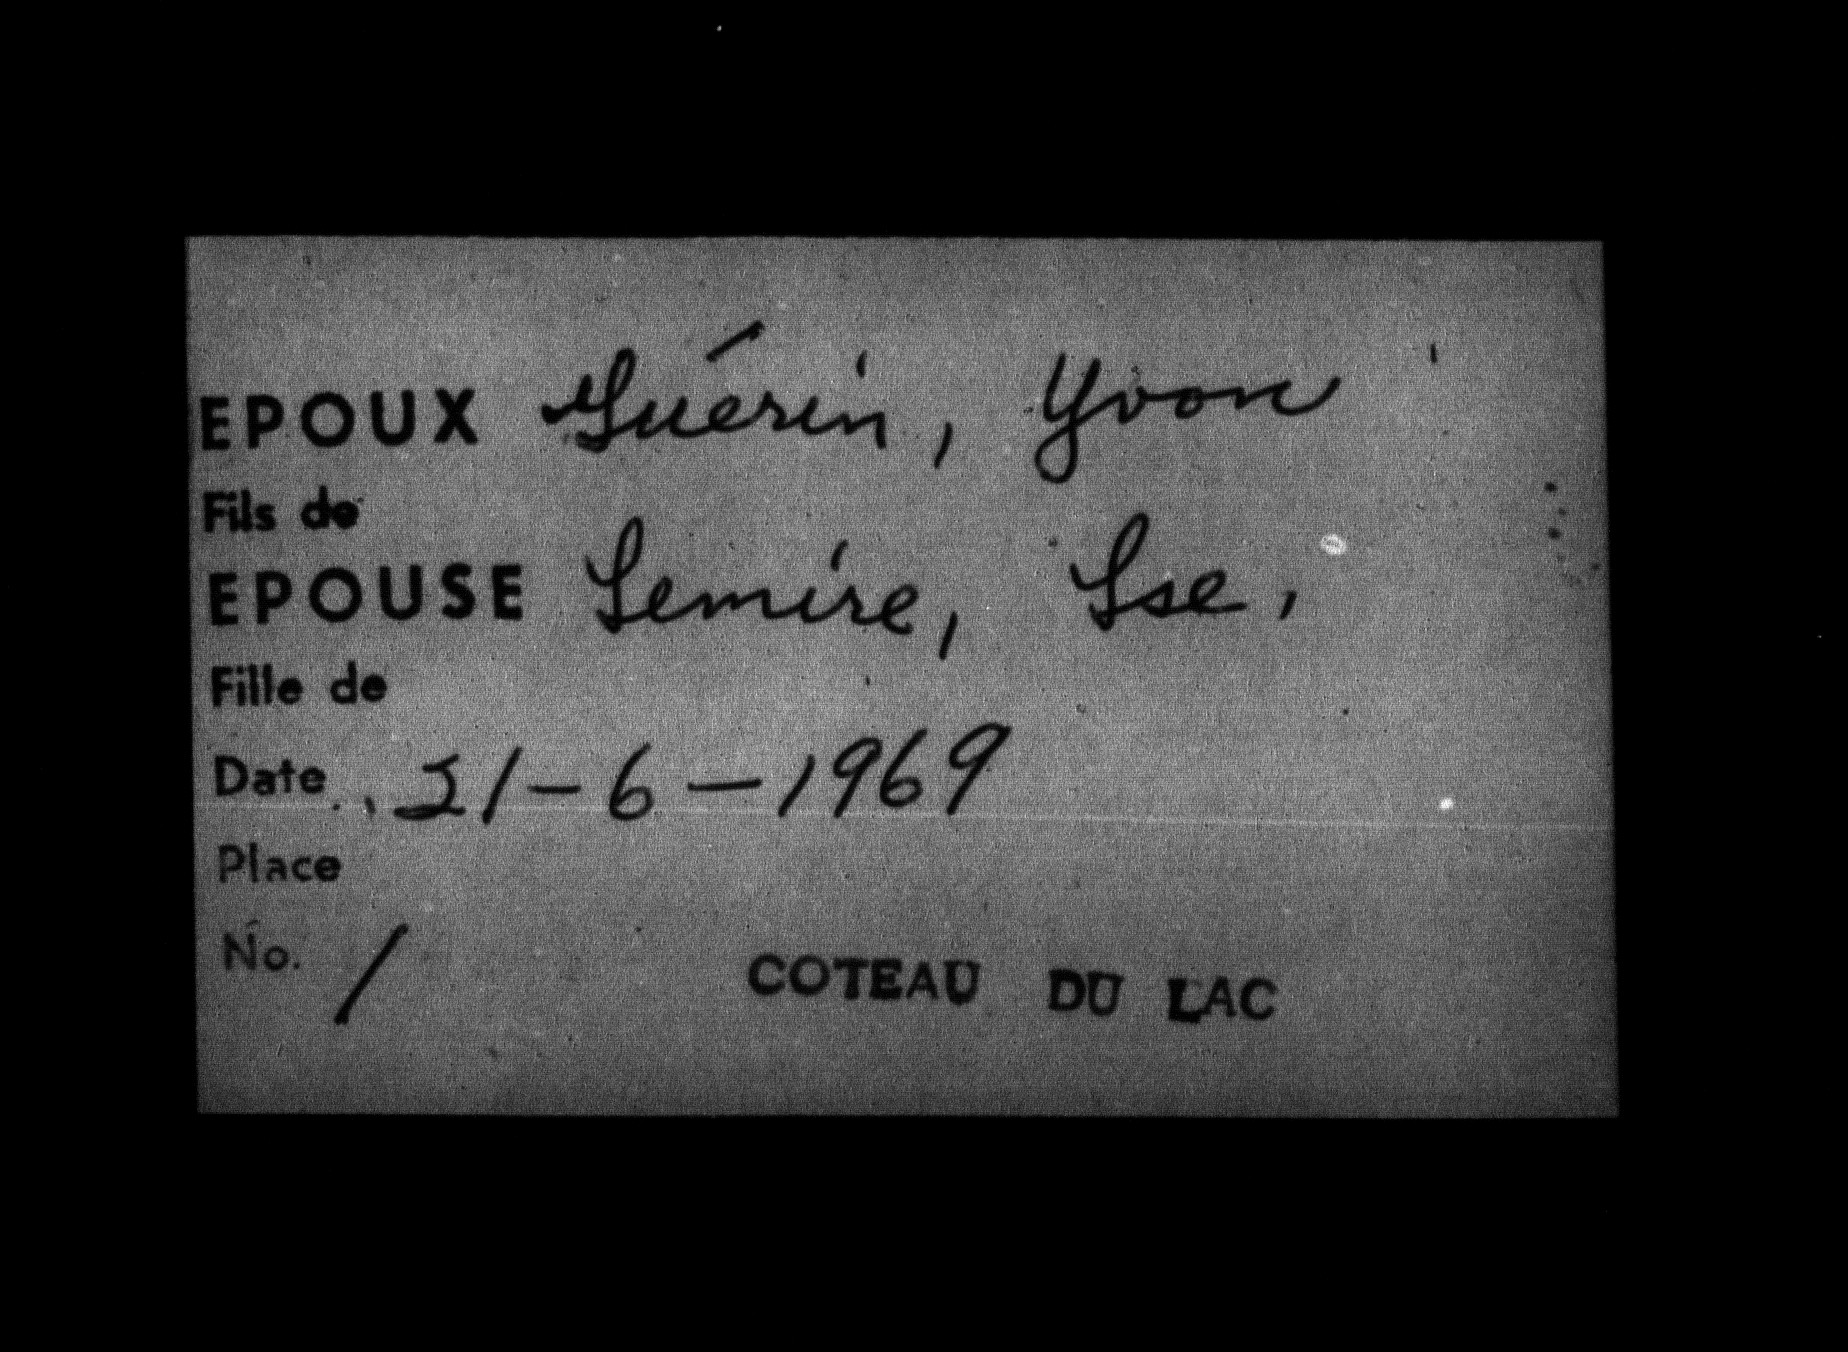 EPOUX Guérin, Yvon
Fils de
EPOUSE Lemire, Lse,
Fille de
Date 21-6-1969
Place
No. 1
COTEAU DU LAC